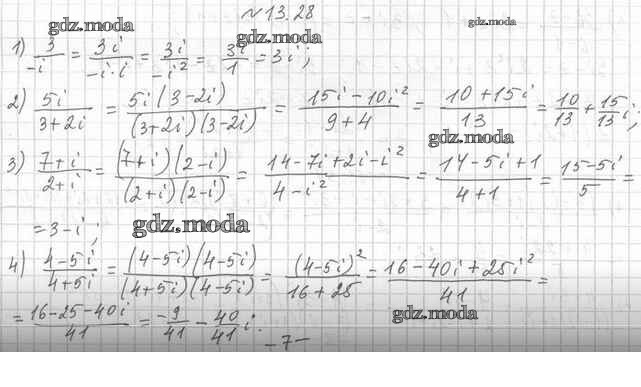 №13.28
gdz.moda
gdz.moda
gdz.moda
1) 3/-i = 3i/-i·i = 3i/-i² = 3i/1 = 3i;
2) 5i/3+2i = 5i(3-2i)/(3+2i)(3-2i) = 15i-10i²/9+4 = 10+15i/13 = 10/13 + 15/13 i;
gdz.moda
3) 7+i/2+i = (7+i)(2-i)/(2+i)(2-i) = 14-7i+2i-i²/4-i² = 14-5i+1/4+1 = 15-5i/5 =
= 3-i;
gdz.moda
4) 4-5i/4+5i = (4-5i)(4-5i)/(4+5i)(4-5i) = (4-5i)²/16+25 = 16-40i+25i²/41 =
gdz.moda
= 16-25-40i/41 = -9/41 - 40/41 i.
-7-